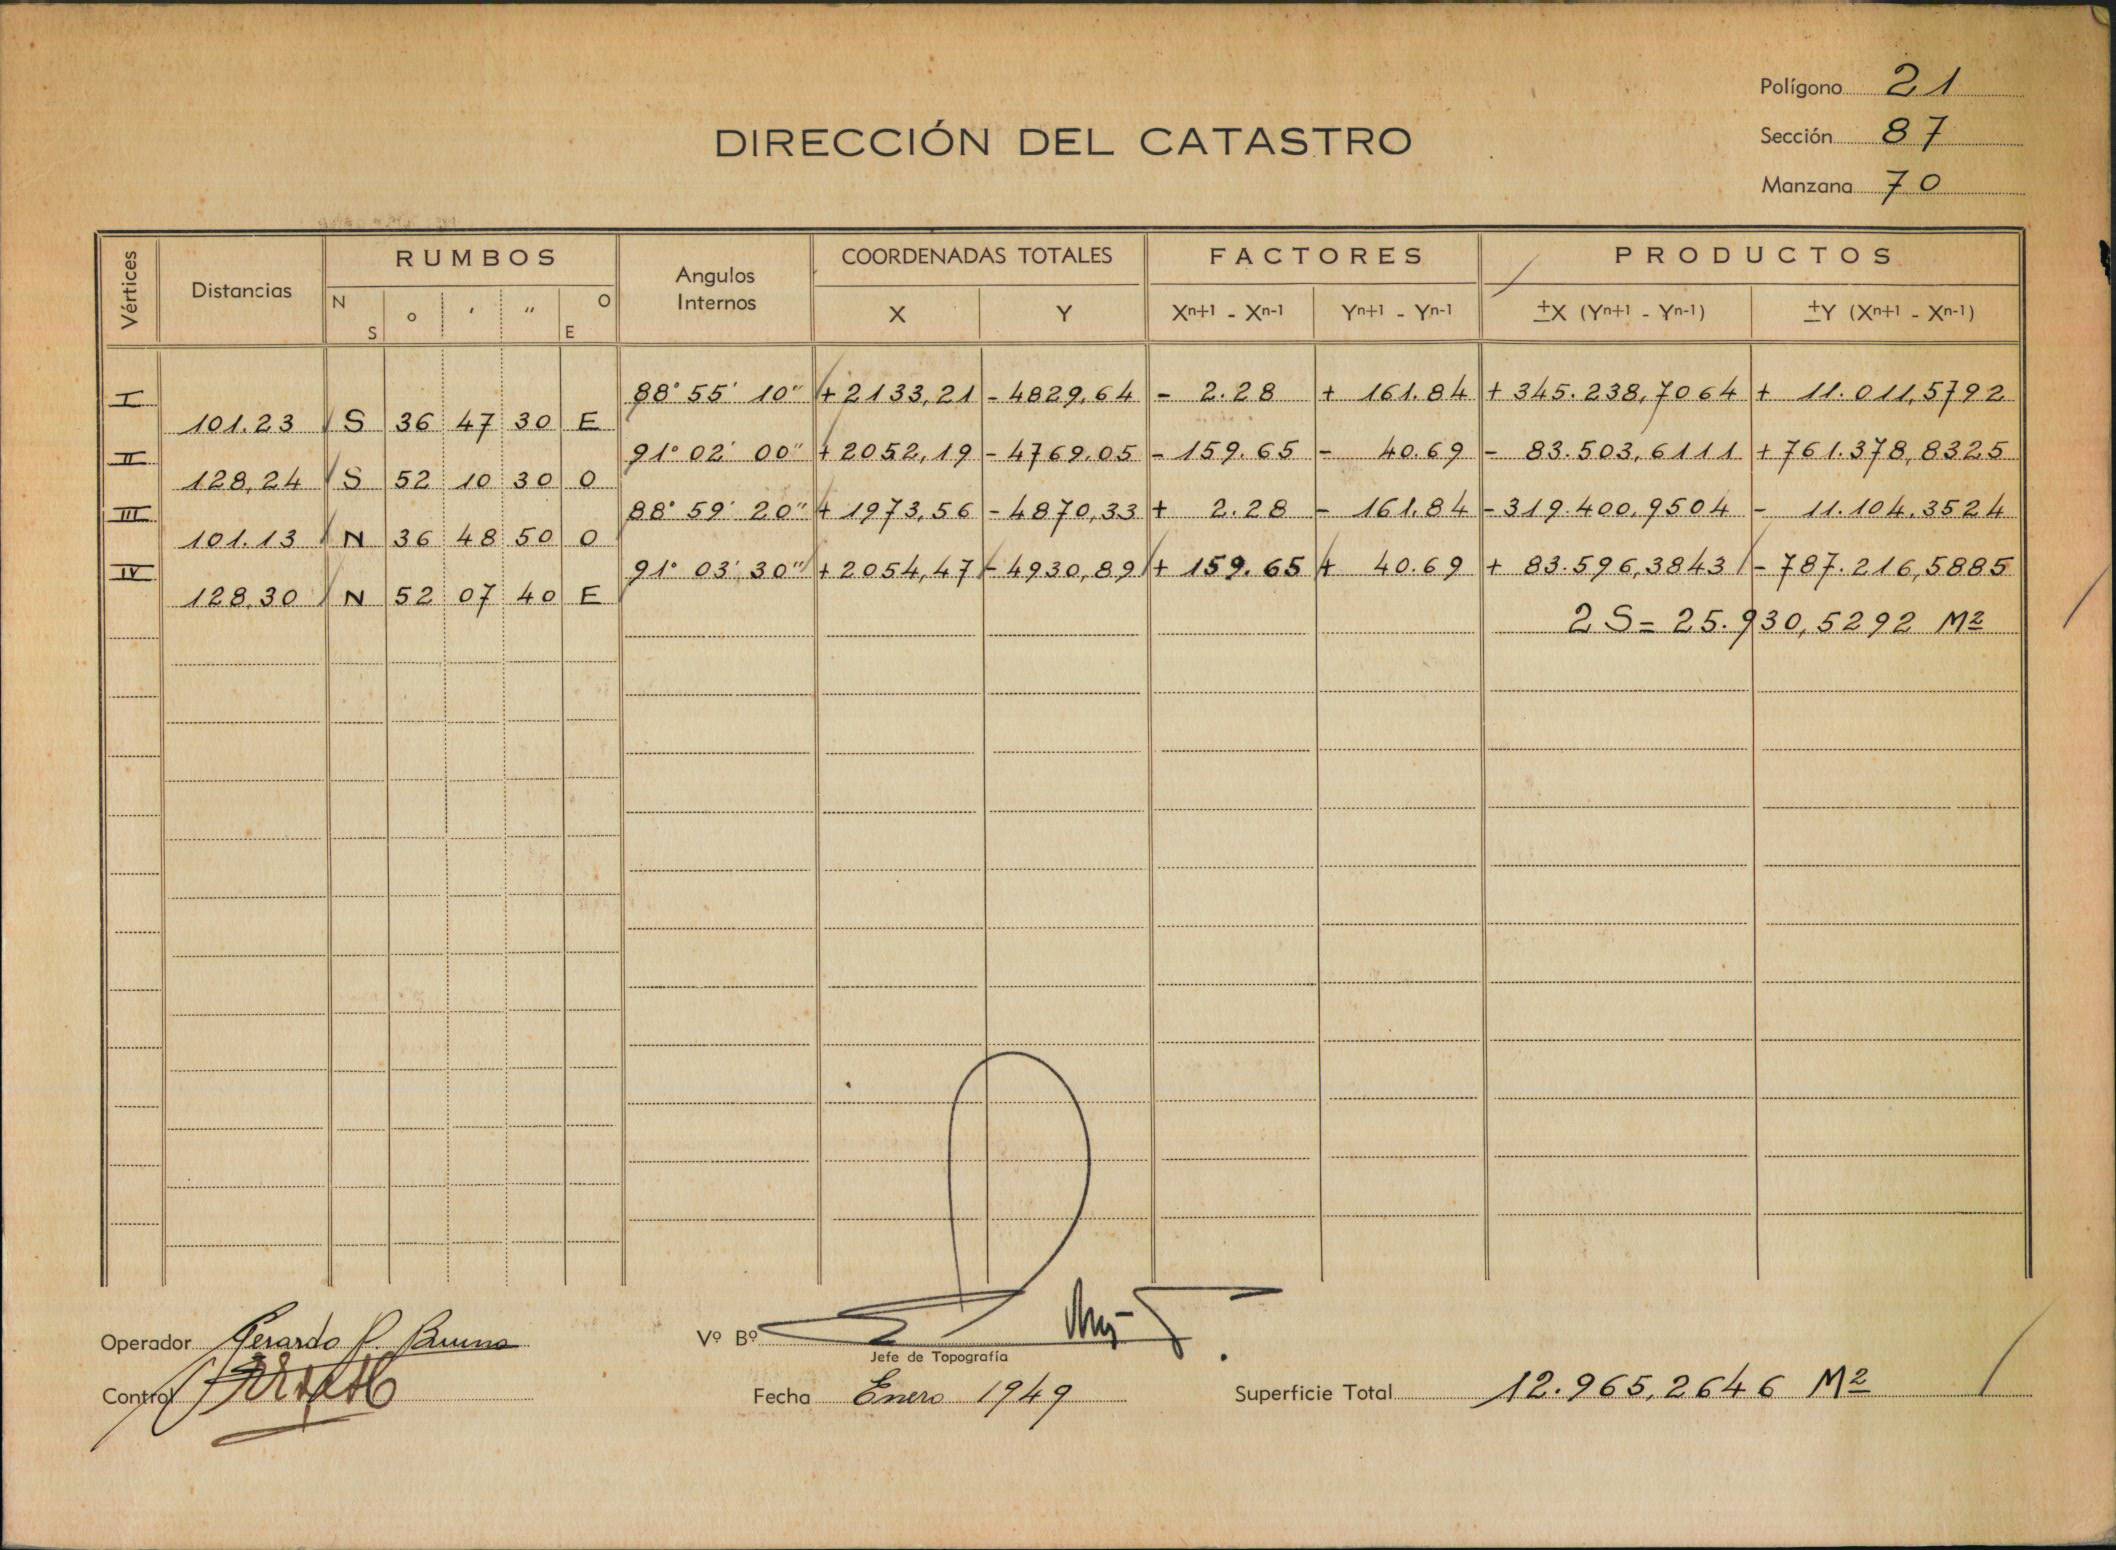 Polígono 21
DIRECCIÓN DEL CATASTRO
Sección 87
Manzana 70
Vértices Distancias RUMBOS Angulos Internos COORDENADAS TOTALES FACTORES PRODUCTOS
N S o ′ ″ O E X Y Xn+1 - Xn-1 Yn+1 - Yn-1 ±X (Yn+1 - Yn-1) ±Y (Xn+1 - Xn-1)
I 88° 55' 10" + 2133,21 - 4829,64 - 2.28 + 161.84 + 345.238,7064 + 11.011,5792
101.23 S 36 47 30 E
II 91° 02' 00" + 2052,19 - 4769.05 - 159.65 - 40.69 - 83.503,6111 + 761.378,8325
128,24 S 52 10 30 O
III 88° 59' 20" + 1973,56 - 4870,33 + 2.28 - 161.84 - 319.400,9504 - 11.104.3524
101.13 N 36 48 50 O
IV 91° 03' 30" + 2054,47 - 4930,89 + 159.65 + 40.69 + 83.596,3843 - 787.216,5885
128,30 N 52 07 40 E
2 S = 25.930,5292 M2
Operador Gerardo P. Bruno
Vº Bº
Jefe de Topografía
Control
Fecha Enero 1949
Superficie Total 12.965,2646 M2